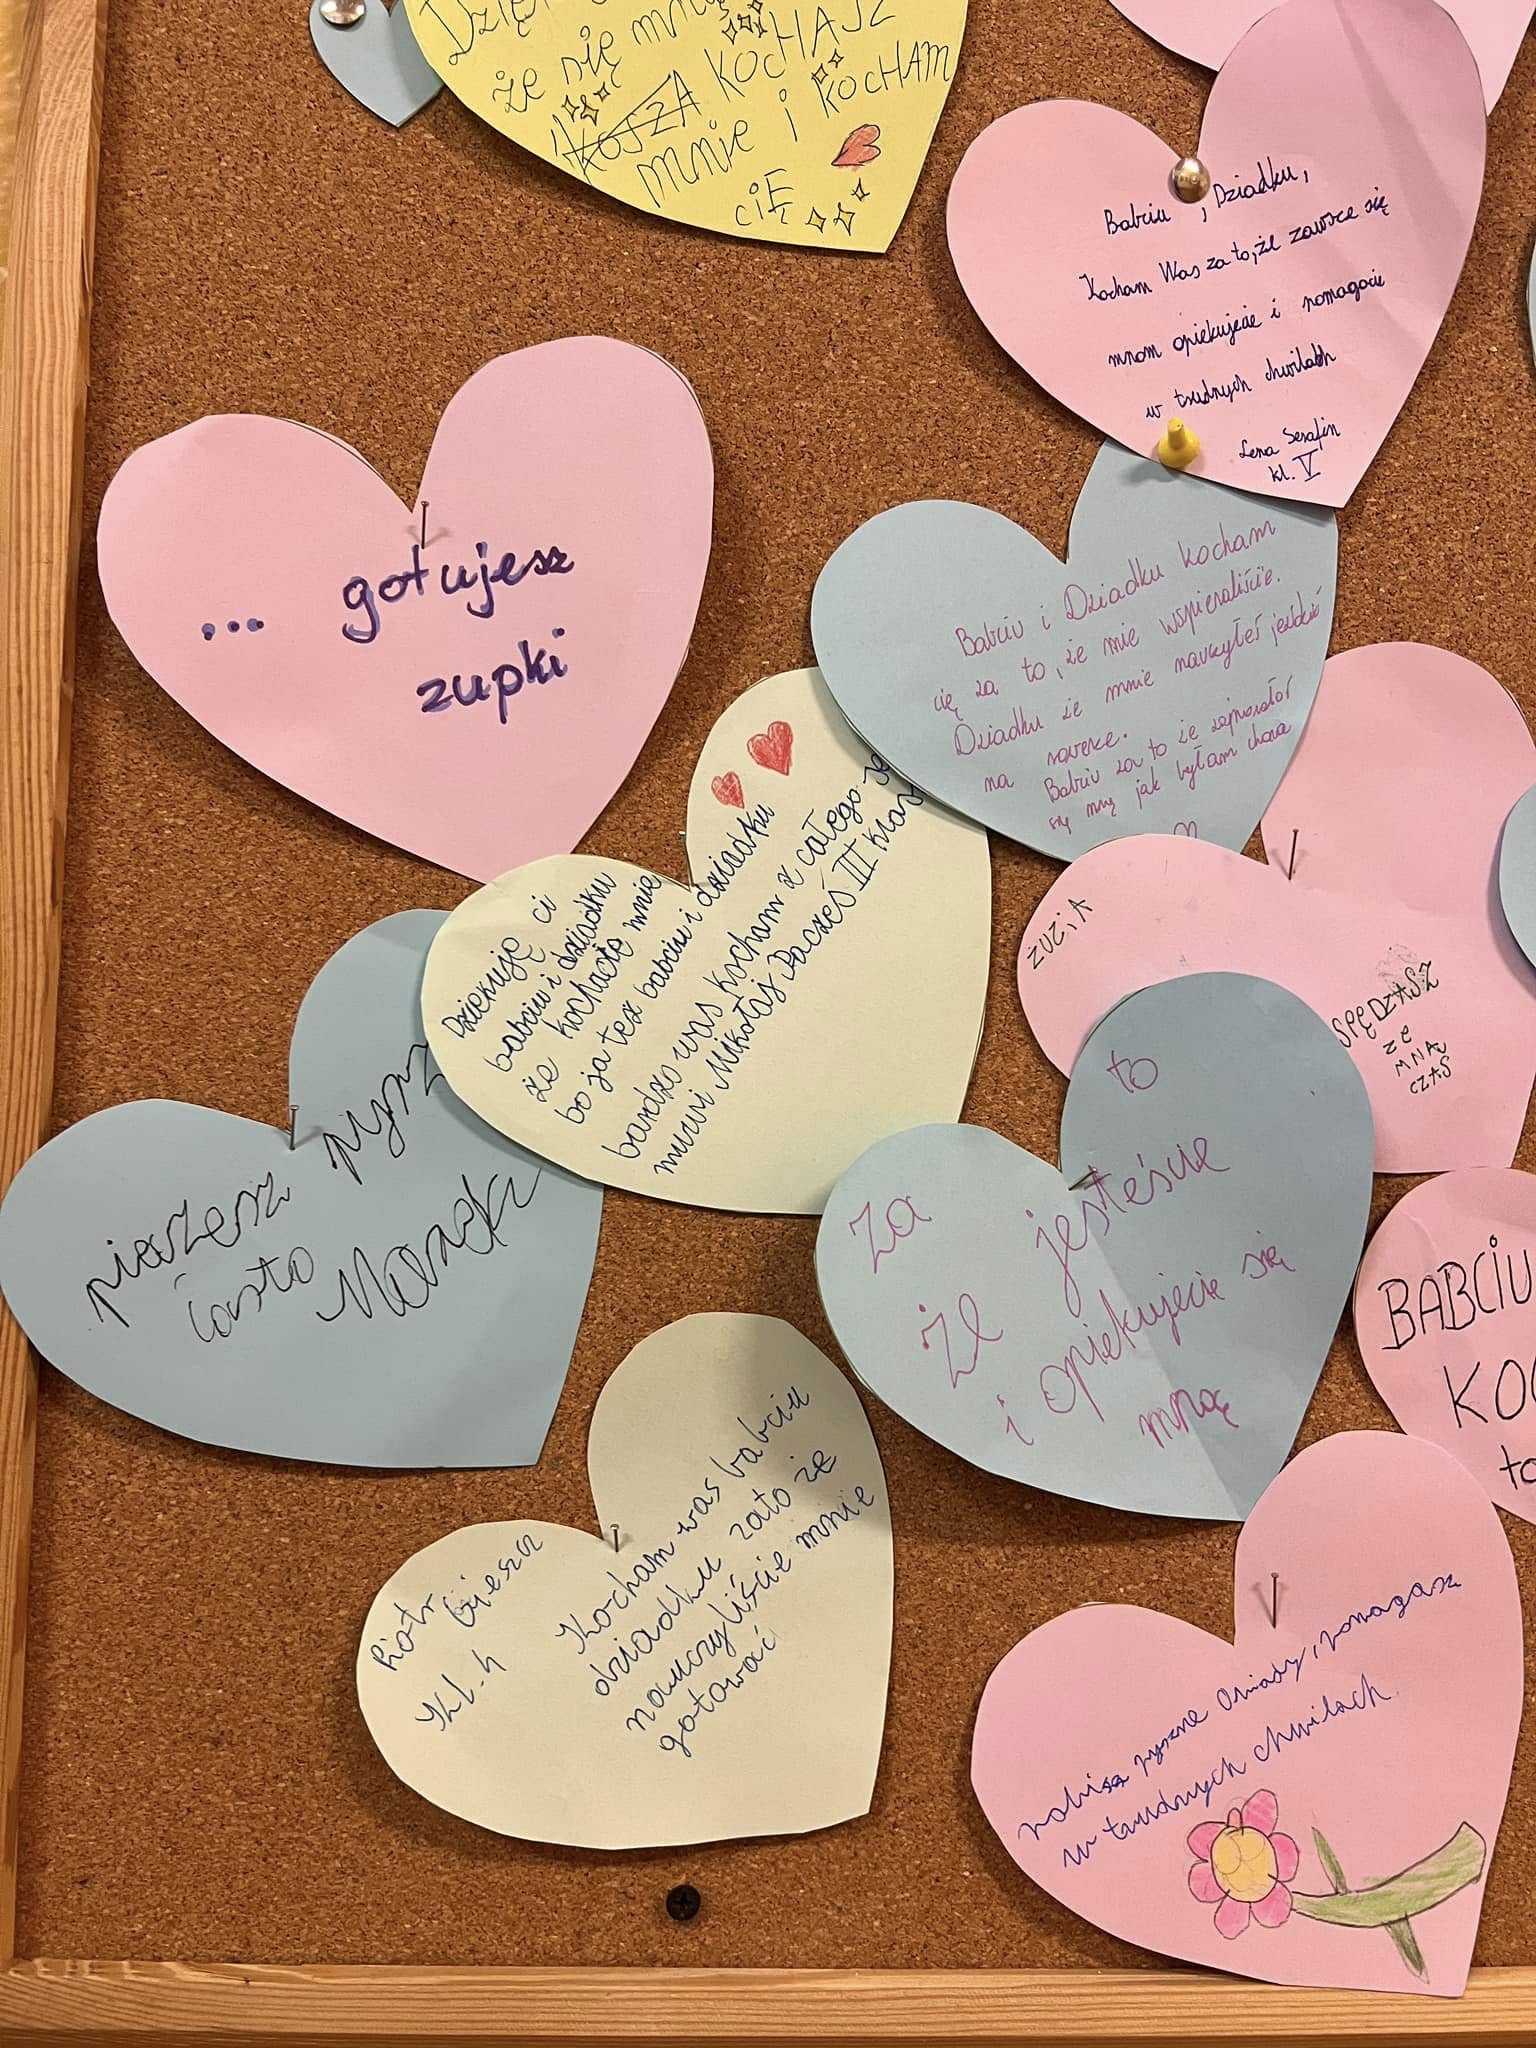 że się
KOCHAJSZ
mnie i KOCHAM
CIĘ
Babciu, Dziadku,
Kocham Was za to, że zawsze się
mnom opiekujecie i pomagacie
w trudnych chwilach
Lena Serafin
kl. V
... gotujesz
zupki
Babciu i Dziadku kocham
cię za to, że mnie wspieraliście.
Dziadku że mnie nauczyłeś jeździć
na
Babciu za to że
się mną jak byłam chora
Dziękuję ci
babciu i dziadku
że kochacie mnie
bo ja też babciu i dziadku
bardzo was kocham z całego se
Mikołaj III klas
ZUZIA
SPĘDZASZ
ZE
MNĄ
CZAS
pieczesz
ciasto
Za to
że jesteście
i opiekujecie się
mną
BABCIU
KOC
to
Piotr
Kl. 4
Kocham was babciu
dziadku zato że
nauczyliście mnie
gotować
robisz pyszne Obiady, pomagasz
w trudnych chwilach.